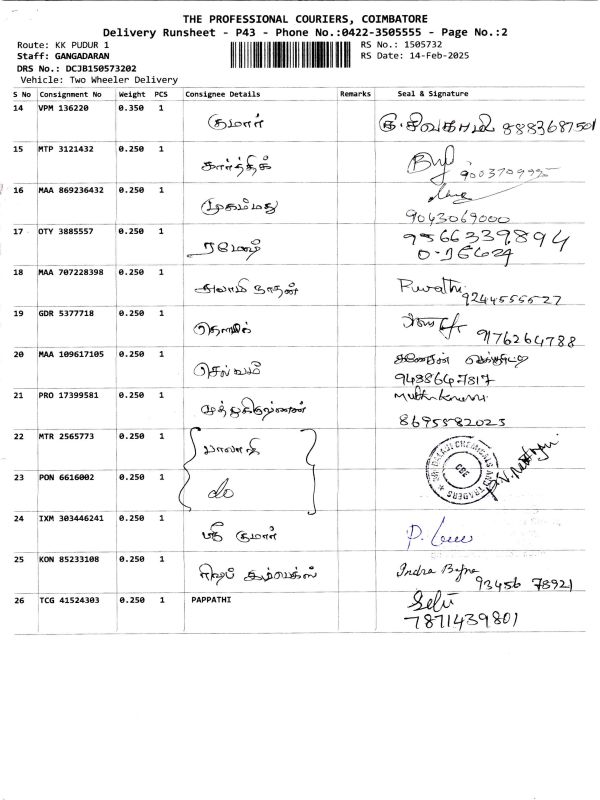 THE PROFESSIONAL COURIERS, COIMBATORE
Delivery Runsheet - P43 - Phone No.:0422-3505555 - Page No.:2
Route: KK PUDUR 1 RS No.: 1505732
Staff: GANGADARAN RS Date: 14-Feb-2025
DRS No.: DCJB150573202
Vehicle: Two Wheeler Delivery
S No Consignment No Weight PCS Consignee Details Remarks Seal & Signature
14 VPM 136220 0.350 1 குமார் 8883687501
15 MTP 3121432 0.250 1 கார்த்திக்
16 MAA 869236432 0.250 1 முகம்மது
9043069000
17 OTY 3885557 0.250 1 ரமேஷ் 9566339894
18 MAA 707228398 0.250 1 9244555527
19 GDR 5377718 0.250 1 9176264788
20 MAA 109617105 0.250 1 செல்வமீ
9438647317
21 PRO 17399581 0.250 1 முத்துகிருஷ்ணன்
8695582023
22 MTR 2565773 0.250 1 பாலாஜி SRI BALAJI CHEMICALS AND TRADERS CBE
23 PON 6616002 0.250 1 do
24 IXM 303446241 0.250 1 ஸ்ரீ குமார்
25 KON 85233108 0.250 1 Indra
93456 78921
26 TCG 41524303 0.250 1 PAPPATHI Selvi
7871439801